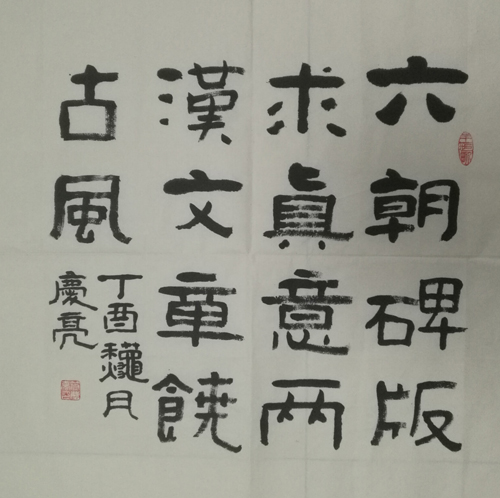 六朝碑版
求真意兩
漢文章饒
古風
丁酉龝月
慶亮